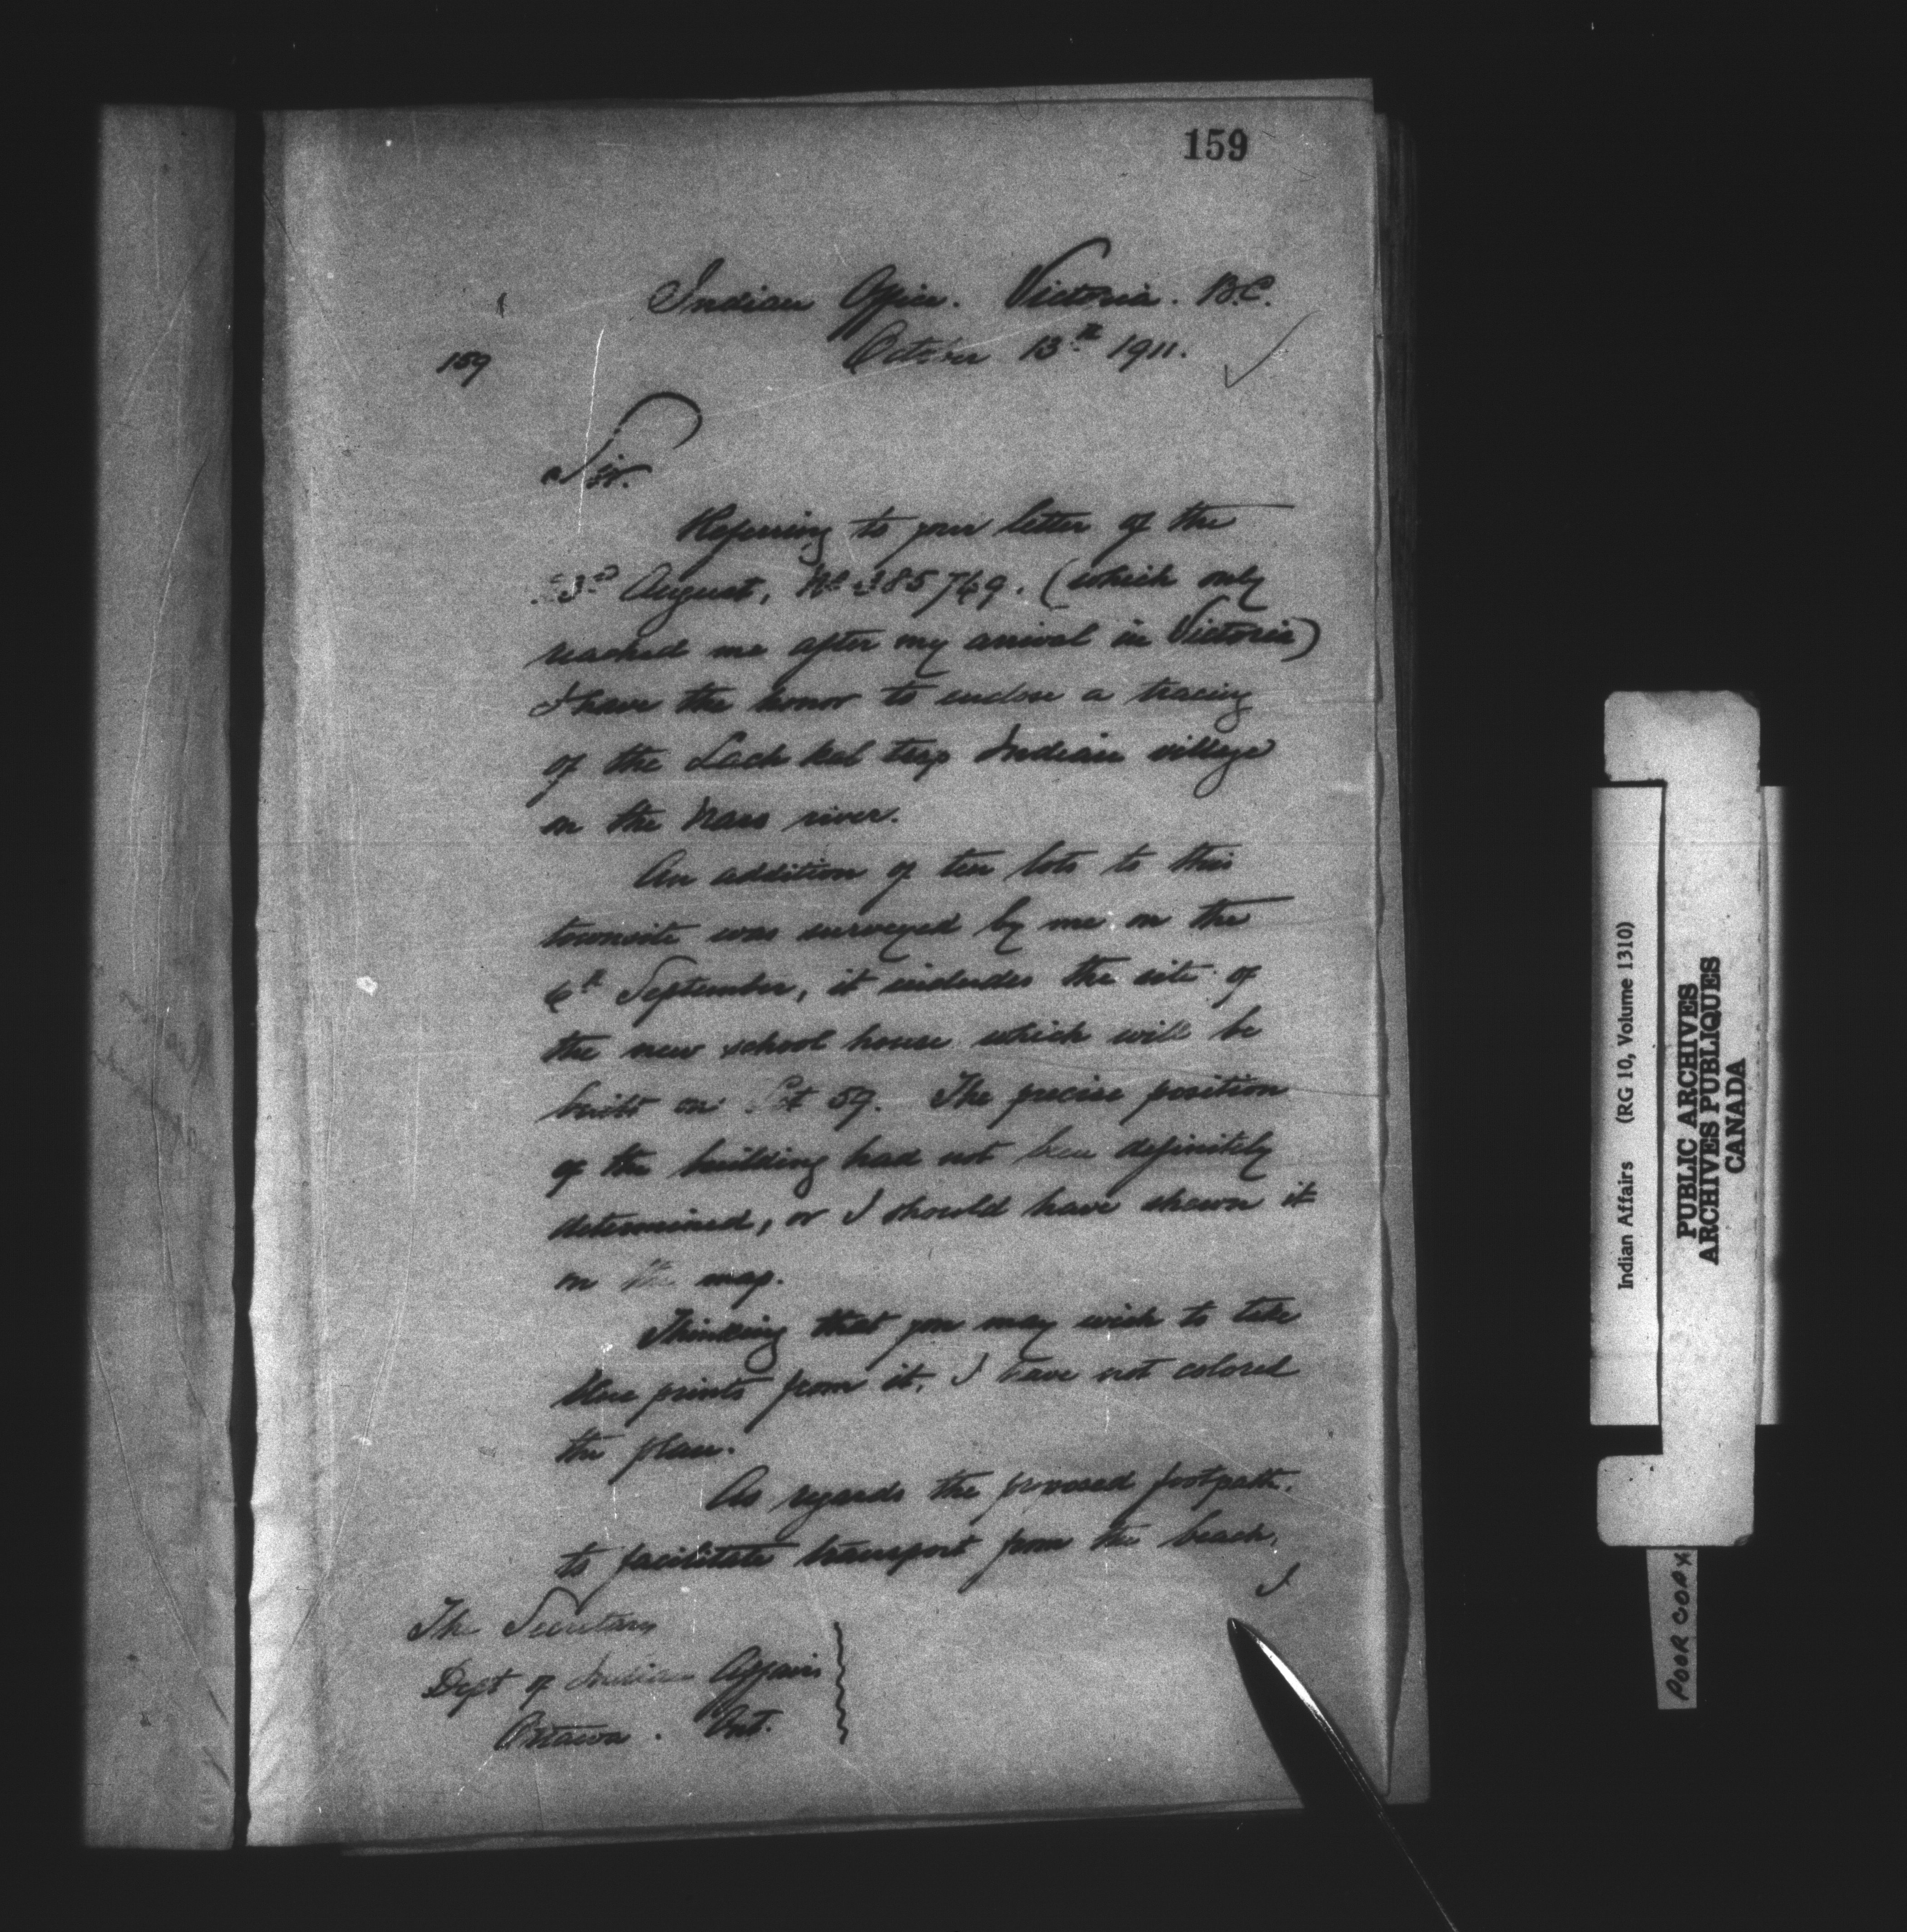 159
Indian Office. Victoria. B.C.
October 13th 1911.
159
Sir.
Referring to your letter of the
3rd August, No 385769. (which only
reached me after my arrival in Victoria)
I have the honor to enclose a tracing
of the Lach kal tsap Indian village
on the Nass river.
An addition of ten lots to this
townsite was surveyed by me on the
6th September, it includes the site of
the new school house which will be
built on Lot 59. The precise position
of the building had not been definitely
determined, or I should have shewn it
on the map.
Thinking that you may wish to take
blue prints from it, I have not colored
the plan.
As regards the proposed footpath,
to facilitate transport from the beach,
I
The Secretary
Dept of Indian Affairs
Ottawa. Ont.
Indian Affairs (RG 10, Volume 1310)
PUBLIC ARCHIVES
ARCHIVES PUBLIQUES
CANADA
POOR COPY